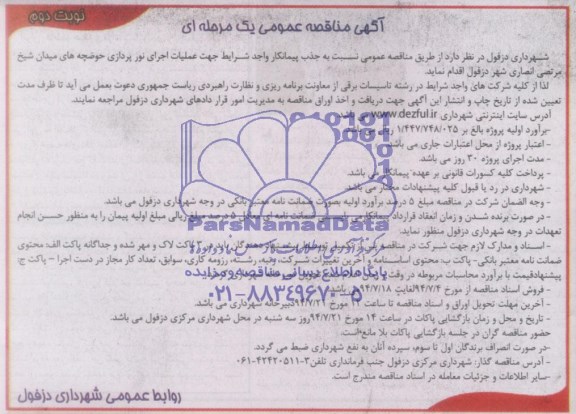 نوبت دوم
آگهی مناقصه عمومی یک مرحله ای
شهرداری دزفول در نظر دارد از طریق مناقصه عمومی نسبت به جذب پیمانکار واجد شرایط جهت عملیات اجرای نور پردازی حوضچه های میدان شیخ
مرتضی انصاری شهر دزفول اقدام نماید.
لذا از کلیه شرکت های واجد شرایط در رشته تاسیسات برقی از معاونت برنامه ریزی و نظارت راهبردی ریاست جمهوری دعوت بعمل می آید تا ظرف مدت
تعیین شده از تاریخ چاپ و انتشار این آگهی جهت دریافت و اخذ اوراق مناقصه به مدیریت امور قرار دادهای شهرداری دزفول مراجعه نمایند.
آدرس سایت اینترنتی شهرداری www.dezful.ir می باشد.
-برآورد اولیه پروژه بالغ بر ۱/۴۴۷/۷۴۸/۰۲۵ ریال می باشد.
- اعتبار پروژه از محل اعتبارات جاری می باشد.
- مدت اجرای پروژه ۳۰ روز می باشد.
- پرداخت کلیه کسورات قانونی بر عهده پیمانکار می باشد.
- شهرداری در رد یا قبول کلیه پیشنهادات مختار می باشد.
- وجه الضمان شرکت در مناقصه مبلغ ۵ درصد برآورد اولیه بصورت ضمانت نامه معتبر بانکی در وجه شهرداری دزفول می باشد.
- در صورت برنده شدن و زمان انعقاد قرارداد پیمانکار می بایستی ضمانت نامه ای معادل ۵ درصد مبلغ ریالی مبلغ اولیه پیمان را به منظور حسن انجام
تعهدات در وجه شهرداری دزفول منظور نماید.
- اسناد و مدارک لازم جهت شرکت در مناقصه پاکت لاک و مهر شده و جداگانه پاکت الف: محتوی
ضمانت نامه معتبر بانکی- پاکت ب: محتوی اساسنامه و آخرین تغییرات شرکت، رتبه، رشته، رزومه کاری، سوابق، تعداد کار مجاز در دست اجرا – پاکت ج:
پیشنهاد قیمت با برآورد محاسبات مربوطه در وقت
- فروش اسناد مناقصه از مورخ ۹۴/۷/۴ لغایت ۹۴/۷/۱۸ می باشد.
- آخرین مهلت تحویل اوراق و اسناد مناقصه تا ساعت ۱۲ مورخ ۹۴/۷/۲۱ دبیرخانه شهرداری می باشد.
- تاریخ و محل و زمان بازگشایی پاکات در ساعت ۱۴ مورخ ۹۴/۷/۲۱ روز سه شنبه در محل شهرداری مرکزی دزفول می باشد.
حضور مناقصه گران در جلسه بازگشایی پاکات بلا مانع است.
-در صورت انصراف برندگان اول تا سوم، سپرده آنان به نفع شهرداری ضبط می گردد.
- آدرس مناقصه گذار: شهرداری مرکزی دزفول جنب فرمانداری تلفن ۳-۴۲۴۲۰۵۱۱-۰۶۱
-سایر اطلاعات و جزئیات معامله در اسناد مناقصه مندرج است.
روابط عمومی شهرداری دزفول
ParsNamadData
پایگاه اطلاع رسانی مناقصه و مزایده
۰۲۱-۸۸۳۴۹۶۷۰-۵